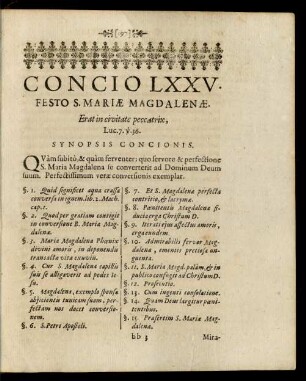 CONCIO LXXV.
FESTO S. MARIÆ MAGDALENÆ.
Erat in civitate peccatrix,
Luc. 7. ℣. 36.
SYNOPSIS CONCIONIS.
QVàm subitò, & quàm ferventer: quo fervore & perfectione
S. Maria Magdalena se converterit ad Dominum Deum
suum. Perfectissimum veræ conversionis exemplar.
§. 1. Quid significet aqua crassa
conversa in ignem. lib. 2. Mach.
cap. 1.
§. 2. Quod per gratiam contigit
in conversione B. Mariæ Magd.
§. 3. Maria Magdalena Phœnix
divini amoris, in deponendo
transacta vitæ exuvio.
§. 4. Cur S. Magdalena capillis
suis se allegaverit ad pedes Jesu.
§. 5. Magdalena, exemplo sponsæ
abjicientis tunicam suam, perfectam
nos docet conversionem.
§. 6. S. Petri Apostoli.
§. 7. Et S. Magdalenæ perfecta
contritio, & lacrymæ.
§. 8. Pœnitentis Magdalenæ fiducia
erga Christum D.
§. 9. Item ejus affectus amoris,
erga eundem.
§. 10. Admirabilis fervor Magdalenæ,
omnia pretiosa ungenta.
§. 11. S. Maria Magd. palàm, & in
publico confugit ad Christum D.
§. 12.
§. 13. Cum ingenti consolatione.
§. 14. Quàm Deus largetur pœnitentibus.
§. 15. Præsertim S. Mariæ Magdalenæ.
Mira-